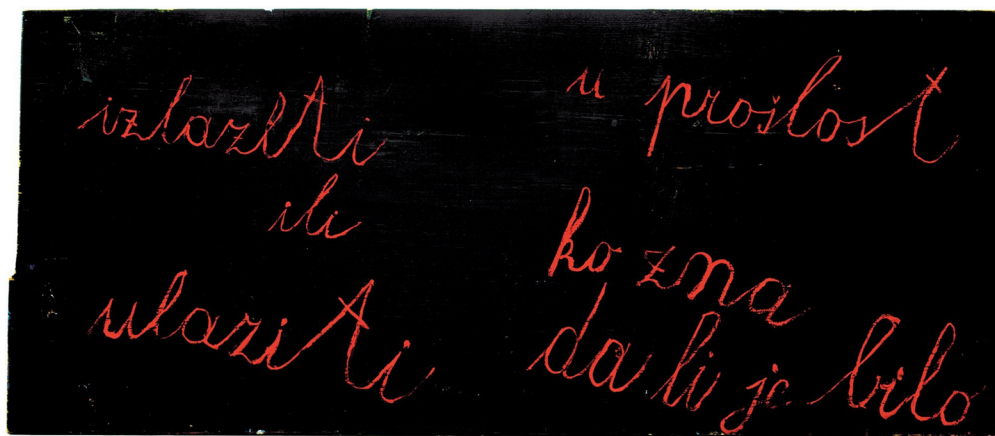 izlazlti
ili
ulaziti
u prošlost
ko zna
da li je bilo